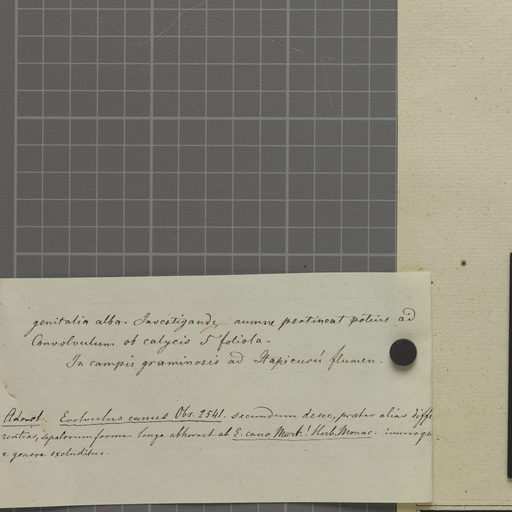 genitalia alba. Investigande numne pertineat potius ad
Convolvulum ob calycis 5 foliola.
In campis graminosis ad Itapicurú flumen.
Adnot. Evolvulus canus Obs. 2541. secundum descr., præter alias diffe
rentias, sepalorum forma longe abhorret ab E. cano Mart.! Herb. Monac. immo qu
e genere excluditur.